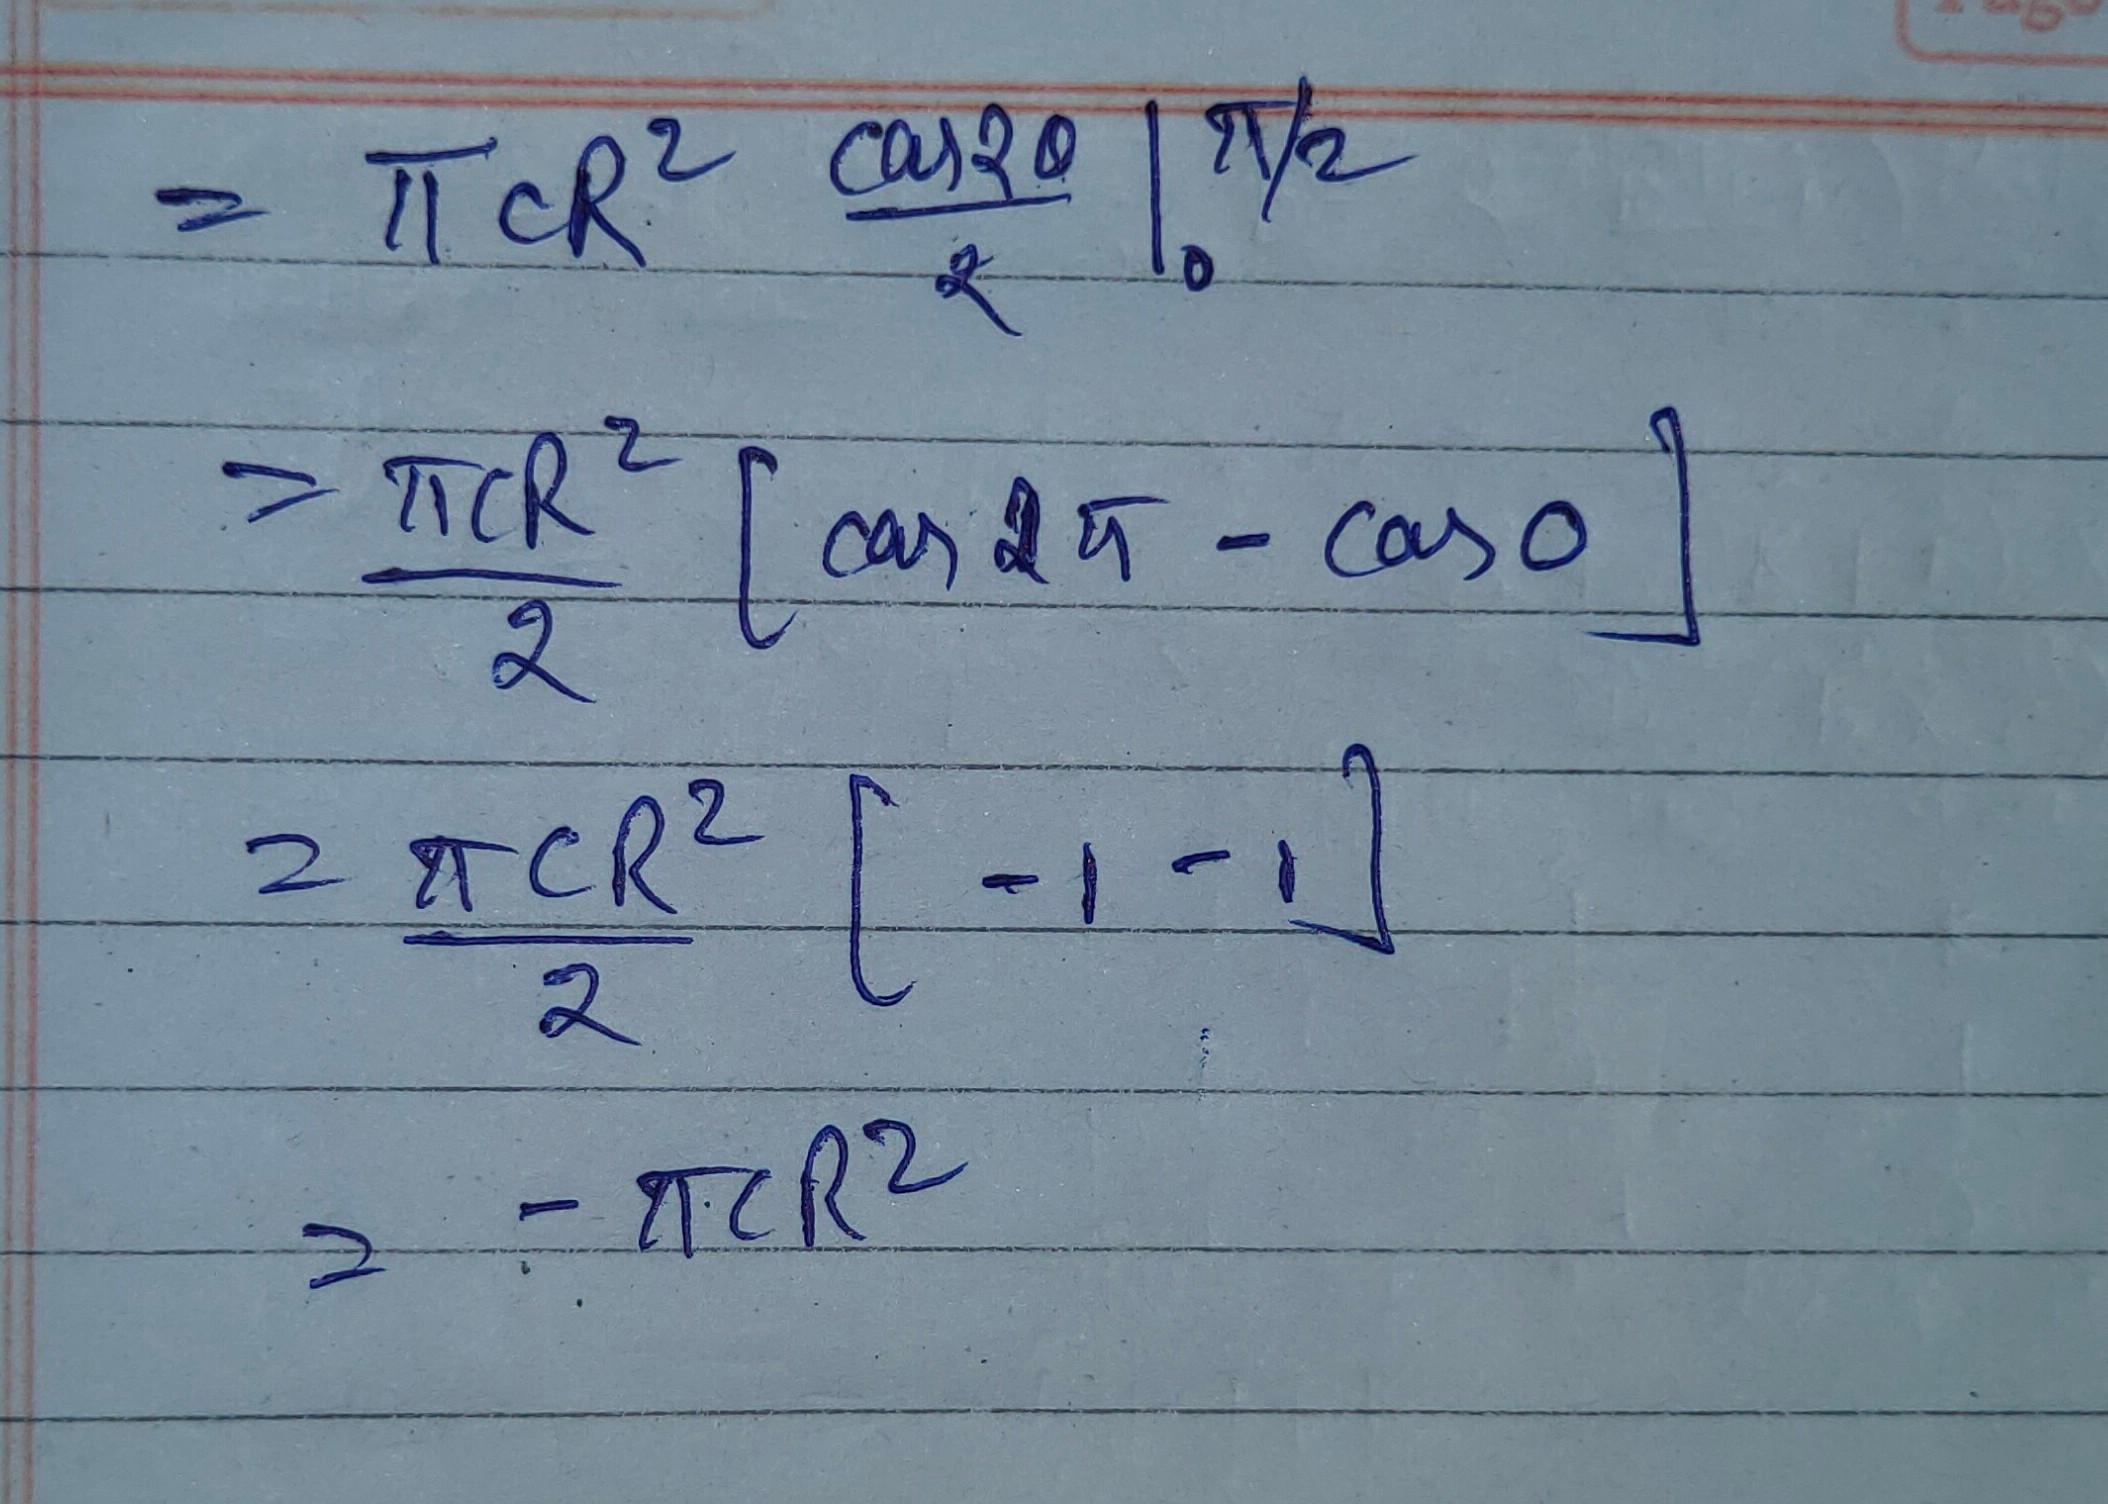 = πCR² cos2θ/2 |₀^π/2
= πCR²/2 [cos2π - cos0]
= πCR²/2 [-1-1]
= -πCR²